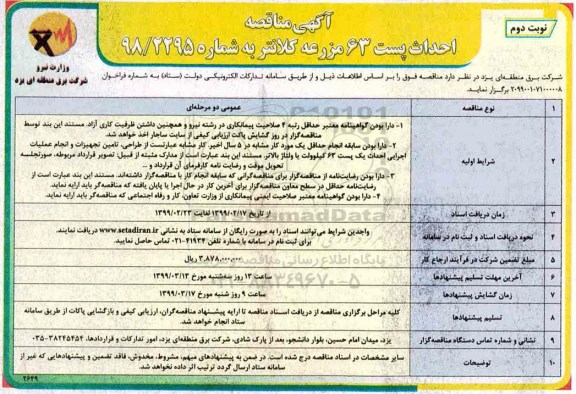 نوبت دوم
آگهی مناقصه
احداث پست ۶۳ مزرعه کلانتر به شماره ۹۸/۲۲۹۵
وزارت نیرو
شرکت برق منطقه ای یزد
شرکت برق منطقه‌ای یزد در نظر دارد مناقصه فوق را بر اساس اطلاعات ذیل و از طریق سامانه تدارکات الکترونیکی دولت (ستاد) به شماره فراخوان
۲۰۹۹۰۰۱۰۷۱۰۰۰۰۰۸ برگزار نماید.
۱ نوع مناقصه عمومی دو مرحله‌ای
۲ شرایط اولیه
۱- دارا بودن گواهینامه معتبر حداقل رتبه ۴ صلاحیت پیمانکاری در رشته نیرو و همچنین داشتن ظرفیت کاری آزاد. مستند این بند توسط
مناقصه‌گزار در روز گشایش پاکت ارزیابی کیفی از سایت ساجار اخذ خواهد شد.
۲- دارا بودن سابقه انجام حداقل یک مورد کار مشابه در ۵ سال اخیر. کار مشابه عبارتست از طراحی، تامین تجهیزات و انجام عملیات
اجرایی احداث یک پست ۶۳ کیلوولت یا ولتاژ بالاتر. مستند این بند عبارت است از مدارک مثبته از قبیل: تصویر قرارداد مربوطه، صورتجلسه
تحویل موقت و رضایت نامه کارفرمای آن قرارداد و...
۳- دارا بودن رضایت‌نامه از مناقصه‌گزار برای مناقصه‌گرانی که سابقه انجام کار با مناقصه‌گزار داشته‌اند. مستند این بند عبارت است از
رضایت‌نامه حداقل در سطح معاون مناقصه‌گزار برای آخرین کار در حال اجرا یا پایان یافته که مناقصه‌گر باید ارایه نماید.
۴- دارا بودن گواهینامه معتبر صلاحیت ایمنی پیمانکاری از وزارت تعاون، کار و رفاه اجتماعی که مناقصه‌گر باید ارایه نماید.
۳ زمان دریافت اسناد از تاریخ ۱۳۹۹/۰۲/۱۷ لغایت ۱۳۹۹/۰۲/۲۳
۴ نحوه دریافت اسناد و ثبت نام در سامانه
واجدین شرایط می‌توانند اسناد را به صورت رایگان از سامانه ستاد به نشانی www.setadiran.ir دریافت نمایند.
برای ثبت نام در سامانه با شماره تلفن ۴۱۹۳۴-۰۲۱ تماس حاصل نمایید.
۵ مبلغ تضمین شرکت در فرآیند ارجاع کار ۳.۸۷۸.۰۰۰.۰۰۰ ریال
۶ آخرین مهلت تسلیم پیشنهادها ساعت ۱۳ روز سه‌شنبه مورخ ۱۳۹۹/۰۳/۱۳
۷ زمان گشایش پیشنهادها ساعت ۹ روز شنبه مورخ ۱۳۹۹/۰۳/۱۷
۸ تسلیم پیشنهادها
کلیه مراحل برگزاری مناقصه از دریافت اسناد مناقصه تا ارایه پیشنهاد مناقصه‌گران، ارزیابی کیفی و بازگشایی پاکات از طریق سامانه
ستاد انجام خواهد شد.
۹ نشانی و شماره تماس دستگاه مناقصه‌گزار یزد، میدان امام حسین، بلوار دانشجو، بعد از پارک شادی، شرکت برق منطقه‌ای یزد، امور تدارکات و قراردادها، ۳۸۲۴۵۴۵۴-۰۳۵
۱۰ توضیحات
سایر مشخصات در اسناد مناقصه درج شده است. در ضمن به پیشنهادهای مبهم، مشروط، مخدوش، فاقد تضمین و پیشنهادهایی که غیر از
سامانه ستاد ارسال گردد ترتیب اثر داده نخواهد شد.
۲۶۴۹
پایگاه اطلاع رسانی مناقصه
۰۲۱-۸۸۳۴۹۶۷۰-۵